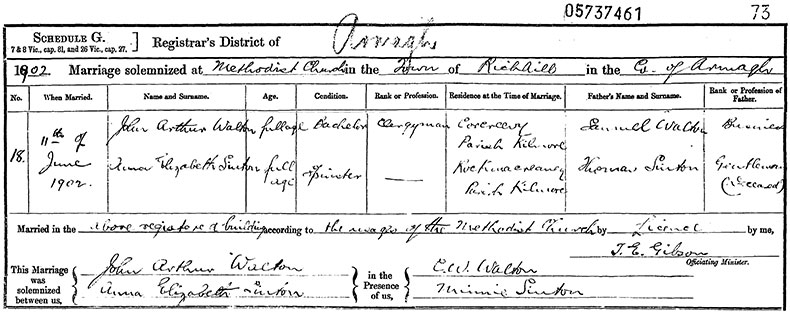 05737461 73
SCHEDULE G. 7 & 8 Vic., cap. 81, and 26 Vic., cap. 27. ] Registrar's District of Armagh
1902. Marriage solemnized at Methodist Church in the Town of Richhill in the Co. of Armagh
No. When Married. Name and Surname. Age. Condition. Rank or Profession. Residence at the Time of Marriage. Father's Name and Surname. Rank or Profession of Father.
18. 11th of June 1902.
John Arthur Walton full age Bachelor Clergyman Parish Kilmore Samuel Walton Business
Anna Elizabeth Sinton full age Spinster — Rockmacreaney Parish Kilmore Thomas Sinton Gentleman (Deceased)
Married in the above registered building according to the usages of the Methodist Church by License by me,
T. E. Gibson
Officiating Minister.
This Marriage was solemnized between us, { John Arthur Walton } in the Presence of us, { C. W. Walton }
{ Anna Elizabeth Sinton } { Minnie Sinton }